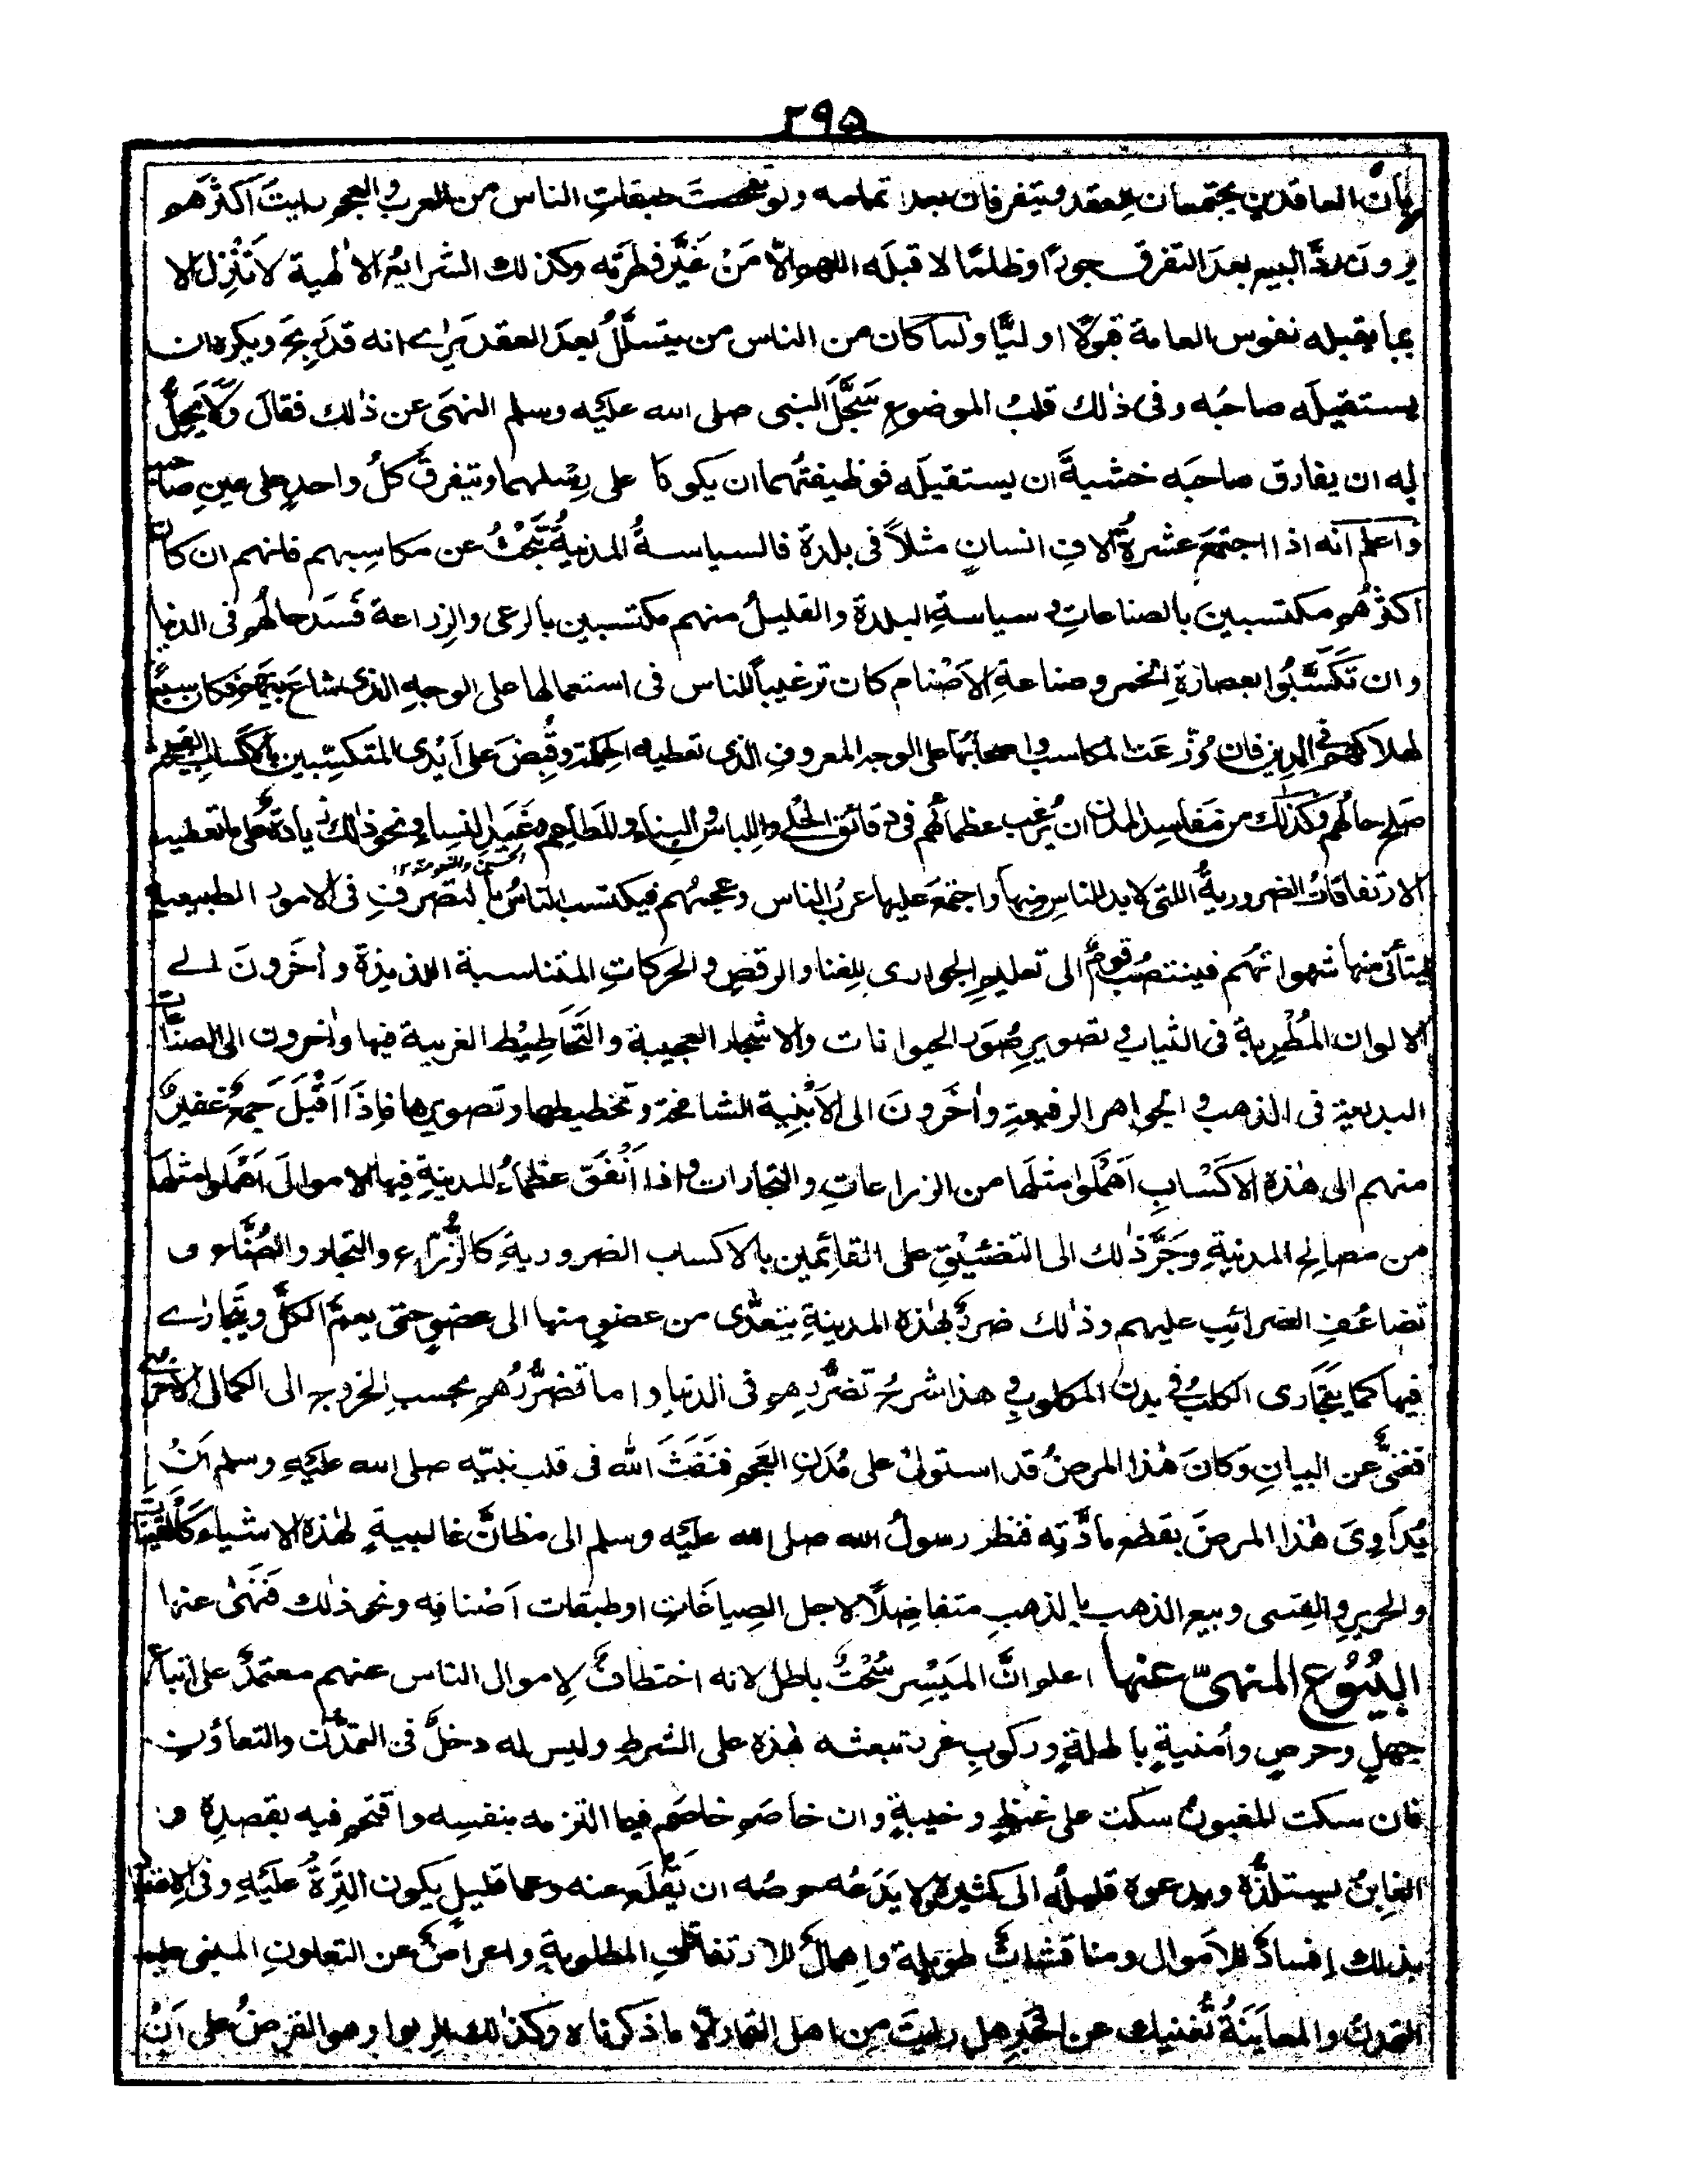 ٢٩٥
بأن العاقدين يجتمعان للعقد ويتفرقان بعد تمامه ولو تفحصتَ طبقاتِ الناس من العرب والعجم رايتَ اكثرَهم
يرونَ ردَّ البيع بعدَ التفرق جورًا وظلمًا لا قبلَه اللهم الّا مَنْ غَيَّر فطرتَه وكذٰلك الشرايعُ الالٰهية لا تَنْزِل الا
بما يقبله نفوس العامة قبولًا اوليًّا ولما كان من الناس من يتسلّلُ بعدَ العقد يَرٰے انه قدرَبِحَ ويكره ان
يستقيلَه صاحبُه وفى ذٰلك قلبُ الموضوعِ سَجَّلَ النبى صلى الله عليه وسلم النهىَ عن ذٰلك فقالَ ولا يَحِلُّ
له ان يفارق صاحبَه خشيةَ ان يستقيلَه فوظيفتُهما ان يكونا على رِسْلهما ويتفرقَ كلُ واحدٍ على عينِ صاحبه
واعلم انه اذا اجتمع عشرةُ الافِ انسانٍ مثلًا فى بلدة فالسياسةُ المدنيةُ تَبْحَثُ عن مكاسِبهم فانهم ان كان
اكثرُهم مكتسبينَ بالصناعاتِ وسياسةِ البلدة والقليلُ منهم مكتسبين بالرعى والزراعة فَسَدَ حالُهم فى الدنيا
وان تَكَسَّبُوا بعصارةِ الخمر وصناعةِ الاَصْنام كان ترغيباً للناس فى استعمالها على الوجهِ الذى شاعَ بينَهم فكان سببًا
لهلاكهم فى الدين فان وُزِّعَت المكاسب واصحابُها على الوجه المعروفِ الذى تعطيه الحكمة وقُبِضَ على اَيْدى المتكسّبين بالاكساب القبيحة
صَلح حالُهم وكذٰلك من مَفَاسِد المدن ان يَرغب عظمائُهم فى دقائق الحُلىِّ واللباس والبناء والمطاعم وغَيَد النساء ونحو ذٰلك زيادةً على ما تعطيه
الحسن والنعومة ١٢
الارتفاقاتُ الضروريةُ اللتى لابد للناس منها واجتمعَ عليها عربُ الناس وعجمُهم فيكتسب الناسُ بالتصرفِ فى الامور الطبيعية
ليتأتى منها شهواتُهم فينتصبُ قومٌ الى تعليم الجوارى للغناء والرقص والحركاتِ المتناسبة اللذيذة واٰخَرونَ الے
الالوان المُطْرِبة فى الثياب وتصويرِ صُوَر الحيوانات والاشجار العجيبة والتَخَاطِيْط الغريبة فيها واٰخرون الى الصناعات
البديعة فى الذهب والجواهر الرفيعةِ واٰخَرونَ الى الاَبْنِية الشامخة وتخطيطها وتصويرها فاِذَا اَقْبَلَ جَمٌّ غفيرٌ
منهم الى هٰذه الاَكْسابِ اَهْمَلوا مثلَها من الزراعاتِ والتجاراتِ واذا اَنْفَقَ عظماءُ المدينةِ فيها الاموالَ اَهْمَلوا مثلَها
من مصالِح المدينةِ وجَرَّ ذٰلك الى التضئيْقِ على القائمين بالاكساب الضروريةِ كالزُّرّاع والتجار والصُنَّاع و
تضاعُفِ الضرائبِ عليهم وذٰلك ضررٌ بهٰذه المدينةِ يتعدّى من عضوٍ منها الى عضوٍ حتى يعمَّ الكلَّ ويتجارٰے
فيها كما يتجَارَى الكلَبُ فى بدن المكلوبِ وهذا شرحُ تضرُّرِهم فى الدنيا واما تضرُّرُهم بحسبِ الخروج الى الكمال الاُخروى
فغنىٌّ عن البيانِ وكانَ هٰذا المرضُ قد استولىٰ على مُدُنِ العَجم فنَفَثَ الله فى قلب نبيّه صلى الله عليه وسلم اَنْ
يُدَاوِىَ هٰذا المرضَ بقطع مادّتِه فنظر رسولُ الله صلى الله عليه وسلم الى مظانَّ غالبيةٍ لهٰذه الاشياء كالقينات
والحريرِ والقِسى وبيع الذهب بالذهبِ متفاضِلًا لاجل الصياغَاتِ او طبقات اَصْنافِه ونحو ذٰلك فَنَهٰى عنها
البُيُوع المنهىّ عنها اعلم انَّ المَيْسِر سُحْتٌ باطل لانه اختطافٌ لِاموال الناس عنهم معتمدٌ على اتباع
جهلٍ وحرصٍ واُمنيةٍ باطلةٍ وركوبِ غرر تبعثه هٰذه على الشرطِ وليس له دخلٌ فى التمدّن والتعاوُنِ
فان سكت المغبونُ سكت على غيظٍ وخيبةٍ وان خاصَم خاصَم فيما التزمه بنفسِه واقتحم فيه بقصدِهٖ و
الغابنُ يستلذُّه ويدعوه قليلُه الى كثيرِه ولا يَدَعُه حرصُه ان يَقْلَع عنه وعما قليلٍ يكون التِرَةُ عليَهِ وفى الاعتياد
بذٰلك اِفسادٌ للاَموال ومناقشاتٌ طويلة واهمالٌ للارتفاقاتِ المطلوبةِ واعراضٌ عن التعاونِ المبنى عليه
التمدنُ والمعاينَةُ تُغنيك عن الخبرِ هل رايتَ من اهل القمار الّا ما ذكرناه وكذٰلك الربوا وهو القرضُ على اَنْ